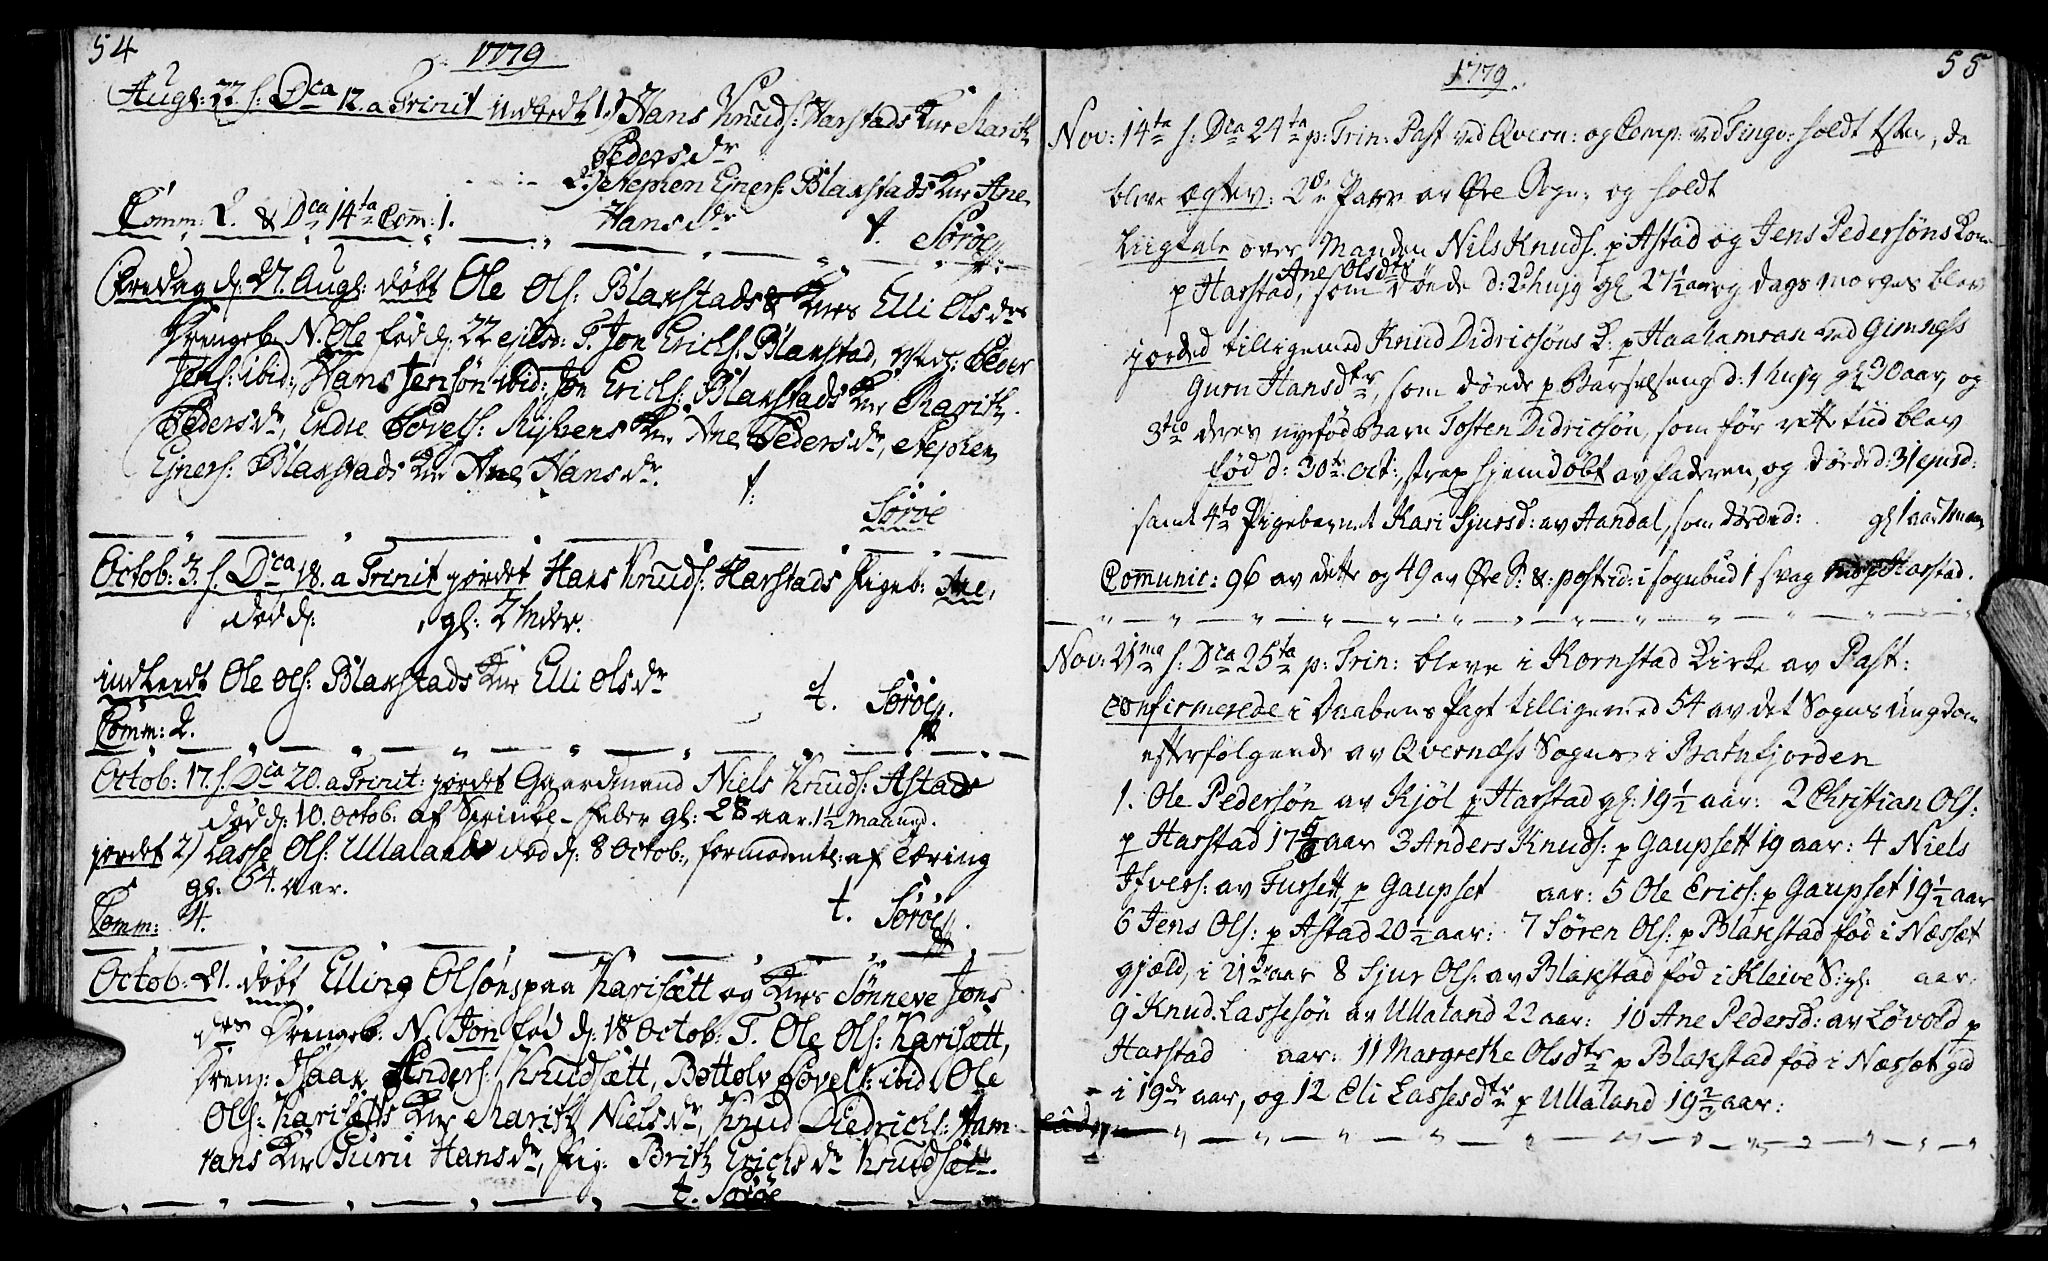 54
1779
Aug: 22. s: Dca 12. a Trinit indledt 1) Hans Knuds: Harstads Kne Marith
Peders dr
2) Stephen Ejners: Blaxstads Kne Ane
Comm: 2. & Dca 14ta Com: 1. Hans dr t. Sørøe
Fredag d: 27. Aug: døbt Ole Ols: Blaxstads & Knes Elli Ols drs
Drengeb. N. Ole fød d: 22 ejusd: T. Jon Erichs: Blaxstad, Peder
Jens: ibid:, Hans Jensøn ibid: Jon Erichs: Blaxstads Kne Marith
Peders dr, Endre Povels: Kne Ane Peders dr, Stephen
Ejners: Blaxstads Kne Ane Hans dr. t:
Sørøe
Octob: 3. s. Dca 18. a Trinit jordet Hans Knuds: Harstads Pigeb: Ane,
død d: , gl: 2 Mdr.
indleedt Ole Ols: Blaxstads Kne Elli Ols dr
t. Sørøe
Comm: 2.
Octob: 17. s. Dca 20. a Trinit: jordet Gaardmand Niels Knuds: Astad
død d: 10. Octob: af gl: 28 aar. 1½ Maaned.
jordet 2) Lasse Ols: Ullaland død d: 8 Octob:, formodentl: af Tæring
gl: 64. aar.
Comm: 4. t. Sørøe
Octob: 21. døbt Elling Olsøns paa Karisætt og Knes Sønneve Jons
drs Drengeb. N. Jon fød d: 18 Octob: T. Ole Ols: Karisætt,
Dreng: Isaax Anders: Knudsætt, Bottolv Povels: ibid Ole
Ols: Karisætts Kne Marith Niels dr, Knud Diedrichs: Ham-
rans Kne Guru Hans dr, Pig: Brith Erichs dr Knudsætt.
t. Sørøe
55
1779.
Nov: 14ta s: Dca 24ta p: Trin: Past ved Qvern: og Comp: ved Tingv: holdt tken, da
bleve ægtev: 2de Parr av Øre Sogn, og holdt
Liigtale over Manden Nils Knuds: p Astad og Jens Pedersøns Kone
p Harstad, Ane Olsdtr som døde d: 2 hujg gl 27½ aar og dags morges blev
jorded tilligemed Knud Didricsøns K. p Haahamran ved Gimness
Guru Hansdtr, som døde p Barselseng d: 1 hujg gl 30 aar, og
3tio deres nyefød Barn Tosten Didricsøn, som før rette tiid blev
fød d: 30te Oct:, strax hjemdøbt av Faderen, og døde d: 31 ejusd:
samt 4to Pigebarnet Kari Sjursd: av Aandal, som døde d: gl 1 aar 7 maan
Comunic: 96 av dette og 49 av Øre S: &: postrid: i sognebud 1 svag p Harstad.
Nov: 21ma s: Dca 25ta p: Trin: bleve i Kornstad Kirke av Past:
confirmerede i Daabens Pagt tilligemed 54 av det Sogns ungdom
efterfølgende av Qvernæss Sogn i Batnfjorden
1. Ole Pedersøn av Kjøl p Harstad gl: 19½ aar: 2 Christian Ols:
p Harstad 17 5/6 aar 3 Anders Knuds: p Gaupsett 19 aar: 4 Niels
Ifvers: av Fursett, p Gaupset aar: 5 Ole Erics: p Gaupset 19½ aar
6 Jens Ols: p Astad 20½ aar: 7 Søren Ols: p Blaxstad fød i Næsset
gjæld, i 21de aar 8 Sjur Ols: av Blaxstad fød i Kleive S: gl. aar:
9 Knud Lassesøn av Ullaland 22 aar: 10 Ane Pedersd: av Løvold p
Harstad aar: 11 Margrethe Olsdtr p Blaxstad fød i Næsset gld
i 19de aar, og 12 Eli Lassesdtr p Ullaland 19⅔ aar: